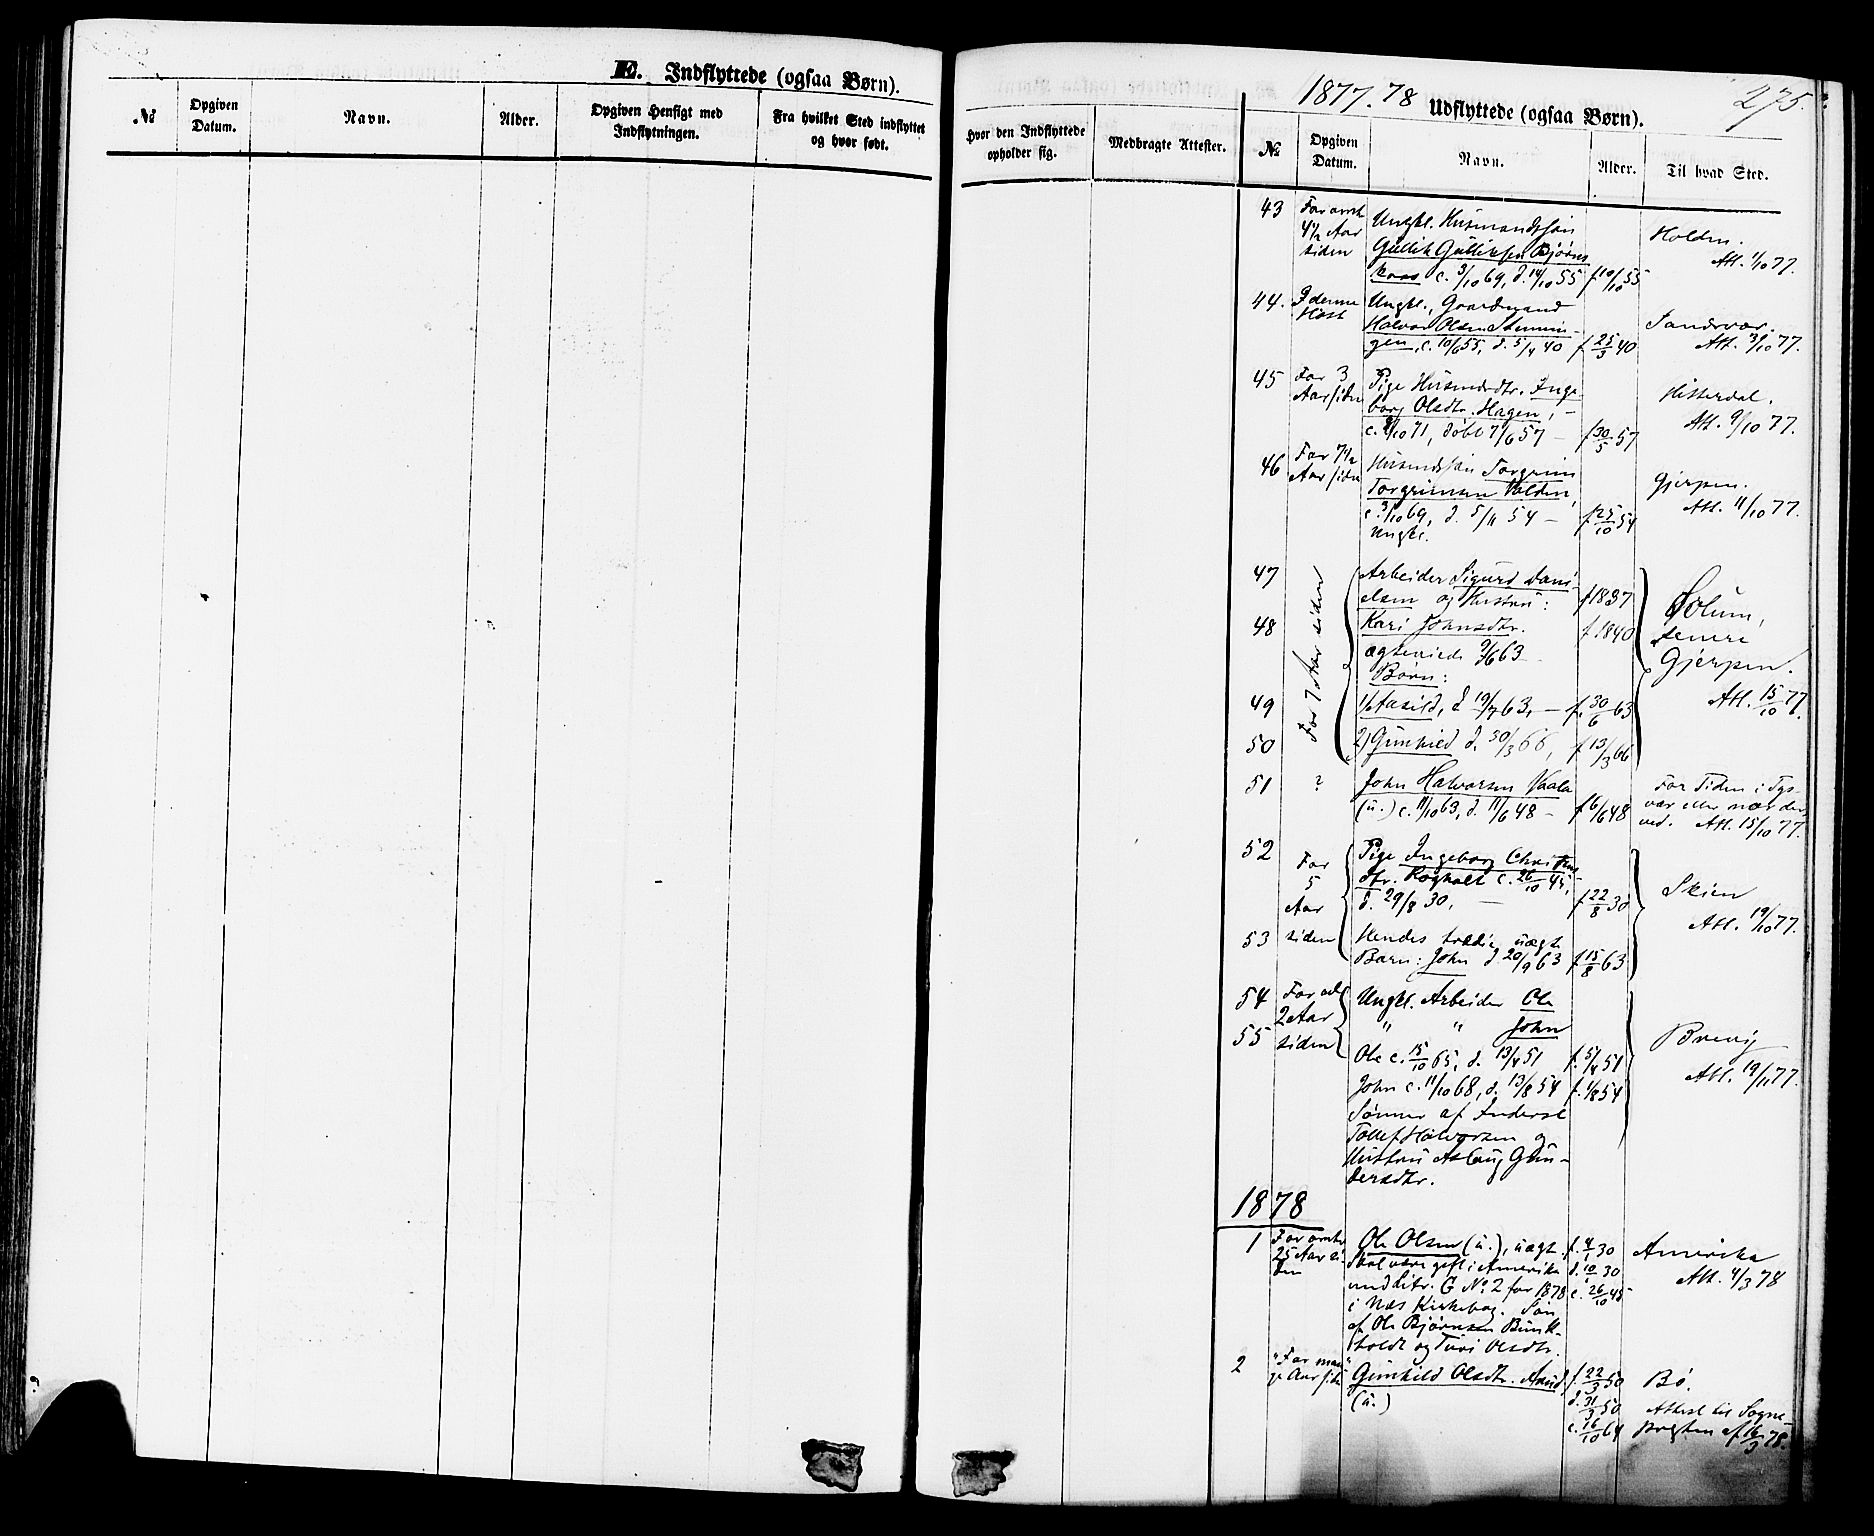 E. Indflyttede (ogsaa Børn).
№ Opgiven Datum. Navn. Alder. Opgiven Hensigt med Indflytningen. Fra hvilket Sted indflyttet og hvor født.
1877.78 Udflyttede (ogsaa Børn). 275.
Hvor den Indflyttede opholder sig. Medbragte Attester. № Opgiven Datum. Navn. Alder. Til hvad Sted.
43 For omtr. Ungkl. Husmandssøn
4½ Aar Gullik Gulliksen Bjørns Holden.
siden kaas c. 3/10 69, d. 14/10 55 f 10/10 55 Att. 1/10 77.
44. I denne Ungkl., Gaardmand
Høst Halvor Olsen Sandsvær.
gen, c. 10/6 55, d. 5/4 40 f 25/3 40 Att. 3/10 77.
45 For 3 Pige Husmdsdtr. Inge-
Aar siden borg Olsdtr. Hagen, - Hitterdal.
c. 8/10 71, døbt 7/6 57 - f 30/5 57 Att. 9/10 77.
46 For 7½ Husmdssøn Torgrim
Aar siden Torgrimsen Valden, Gjerpen.
c. 3/10 69, d. 5/11 54 - f 25/10 54 Att. 11/10 77.
Ungkl.
47 For 7 Aar siden Arbeider Sigurd Dani-
elsen og Hustru: f 1837 Solum,
48 Kari Johnsdtr. f. 1840 senere
ægteviede 9/6 63 - Gjerpen.
Børn:
49 1) Aasild, d 19/7 63, - f. 30/6 63 Att. 15/10 77.
50 2) Gunhild d. 30/3 66, f 13/3 66
51 ? John Halvorsen Vaala For Tiden i Tys-
(u.) c. 11/10 63, d. 11/6 48 - f 6/6 48 vær eller nær der-
ved. Att. 15/10 77.
52 For Pige Ingeborg Christens-
5 dtr. Røgholt c. 26/10 45, Skien
Aar d. 29/8 30, - f 22/8 30 Att. 19/10 77.
53 siden Hendes tredie uægte
Barn: John d 20/9 63 f 15/8 63
54 For Ungkl. Arbeider Ole
2 Aar " " John Brevig
55 siden Ole c. 15/10 65, d. 13/4 51 f. 5/4 51
John c. 11/10 68, d. 13/8 54 f. 1/8 54 Att. 19/11 77.
Sønner af Inderst
Tollef Halvorsen og
Hustru Aslaug Gun-
dersdtr.
1878
1 For omtr. Ole Olsen (u.), uægt. f. 4/1 30 Amerika
25 Aar si- Skal være gift i Amerika d. 10/1 30 Att. 4/3 78
den und Litr. G No 2 for 1878 c. 26/10 45
i Næs Kirkebog. Søn
af Ole Bjørnsen Bunk-
holdt og Turi Olsdtr.
2 "For man- Gunhild Olsdtr. f. 22/3 50 Bø.
ge Aar siden" (u.) d. 31/3 50 Attest til Sogne-
c. 16/10 64 prægten af 16/3 78.